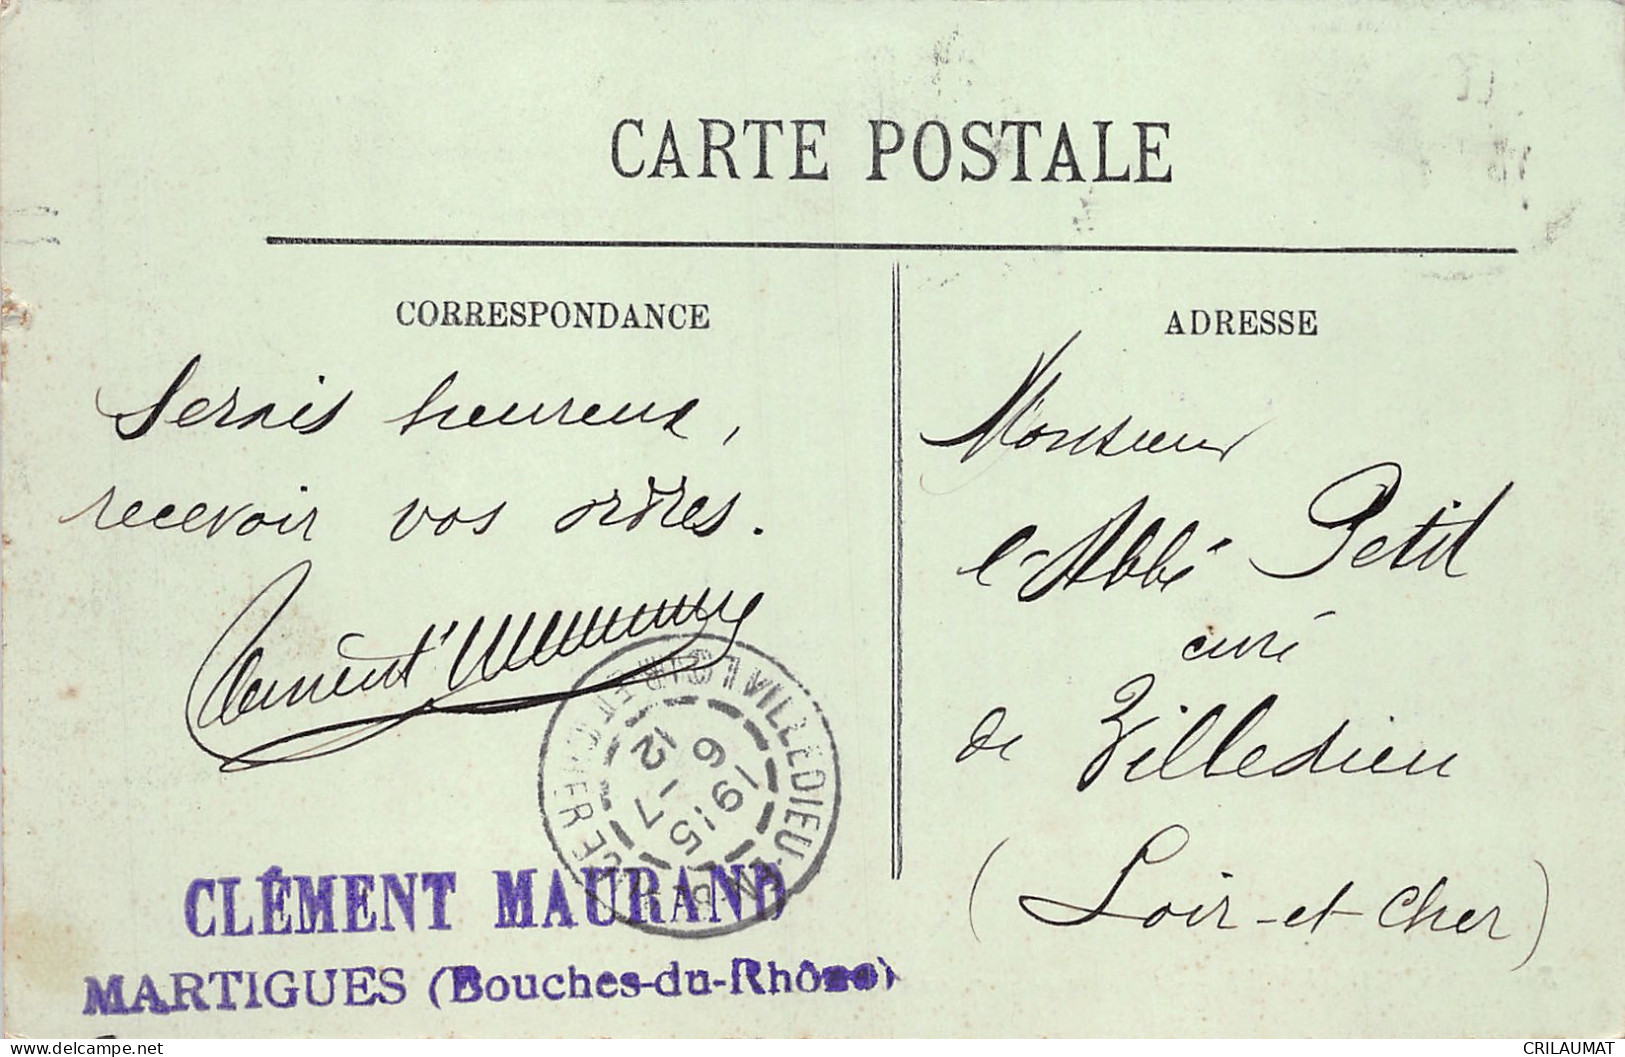 CARTE POSTALE
CORRESPONDANCE
Serais heureux,
recevoir vos ordres.
Clément Maurand
CLÉMENT MAURAND
MARTIGUES (Bouches-du-Rhône)
VILLEDIEU-EN-BEAUCE
LOIR-ET-CHER
12-7
6 1915
ADRESSE
Monsieur
l'Abbé Petit
curé
de Villedieu
(Loir-et-Cher)
delcampe.net
CRILAUMAT